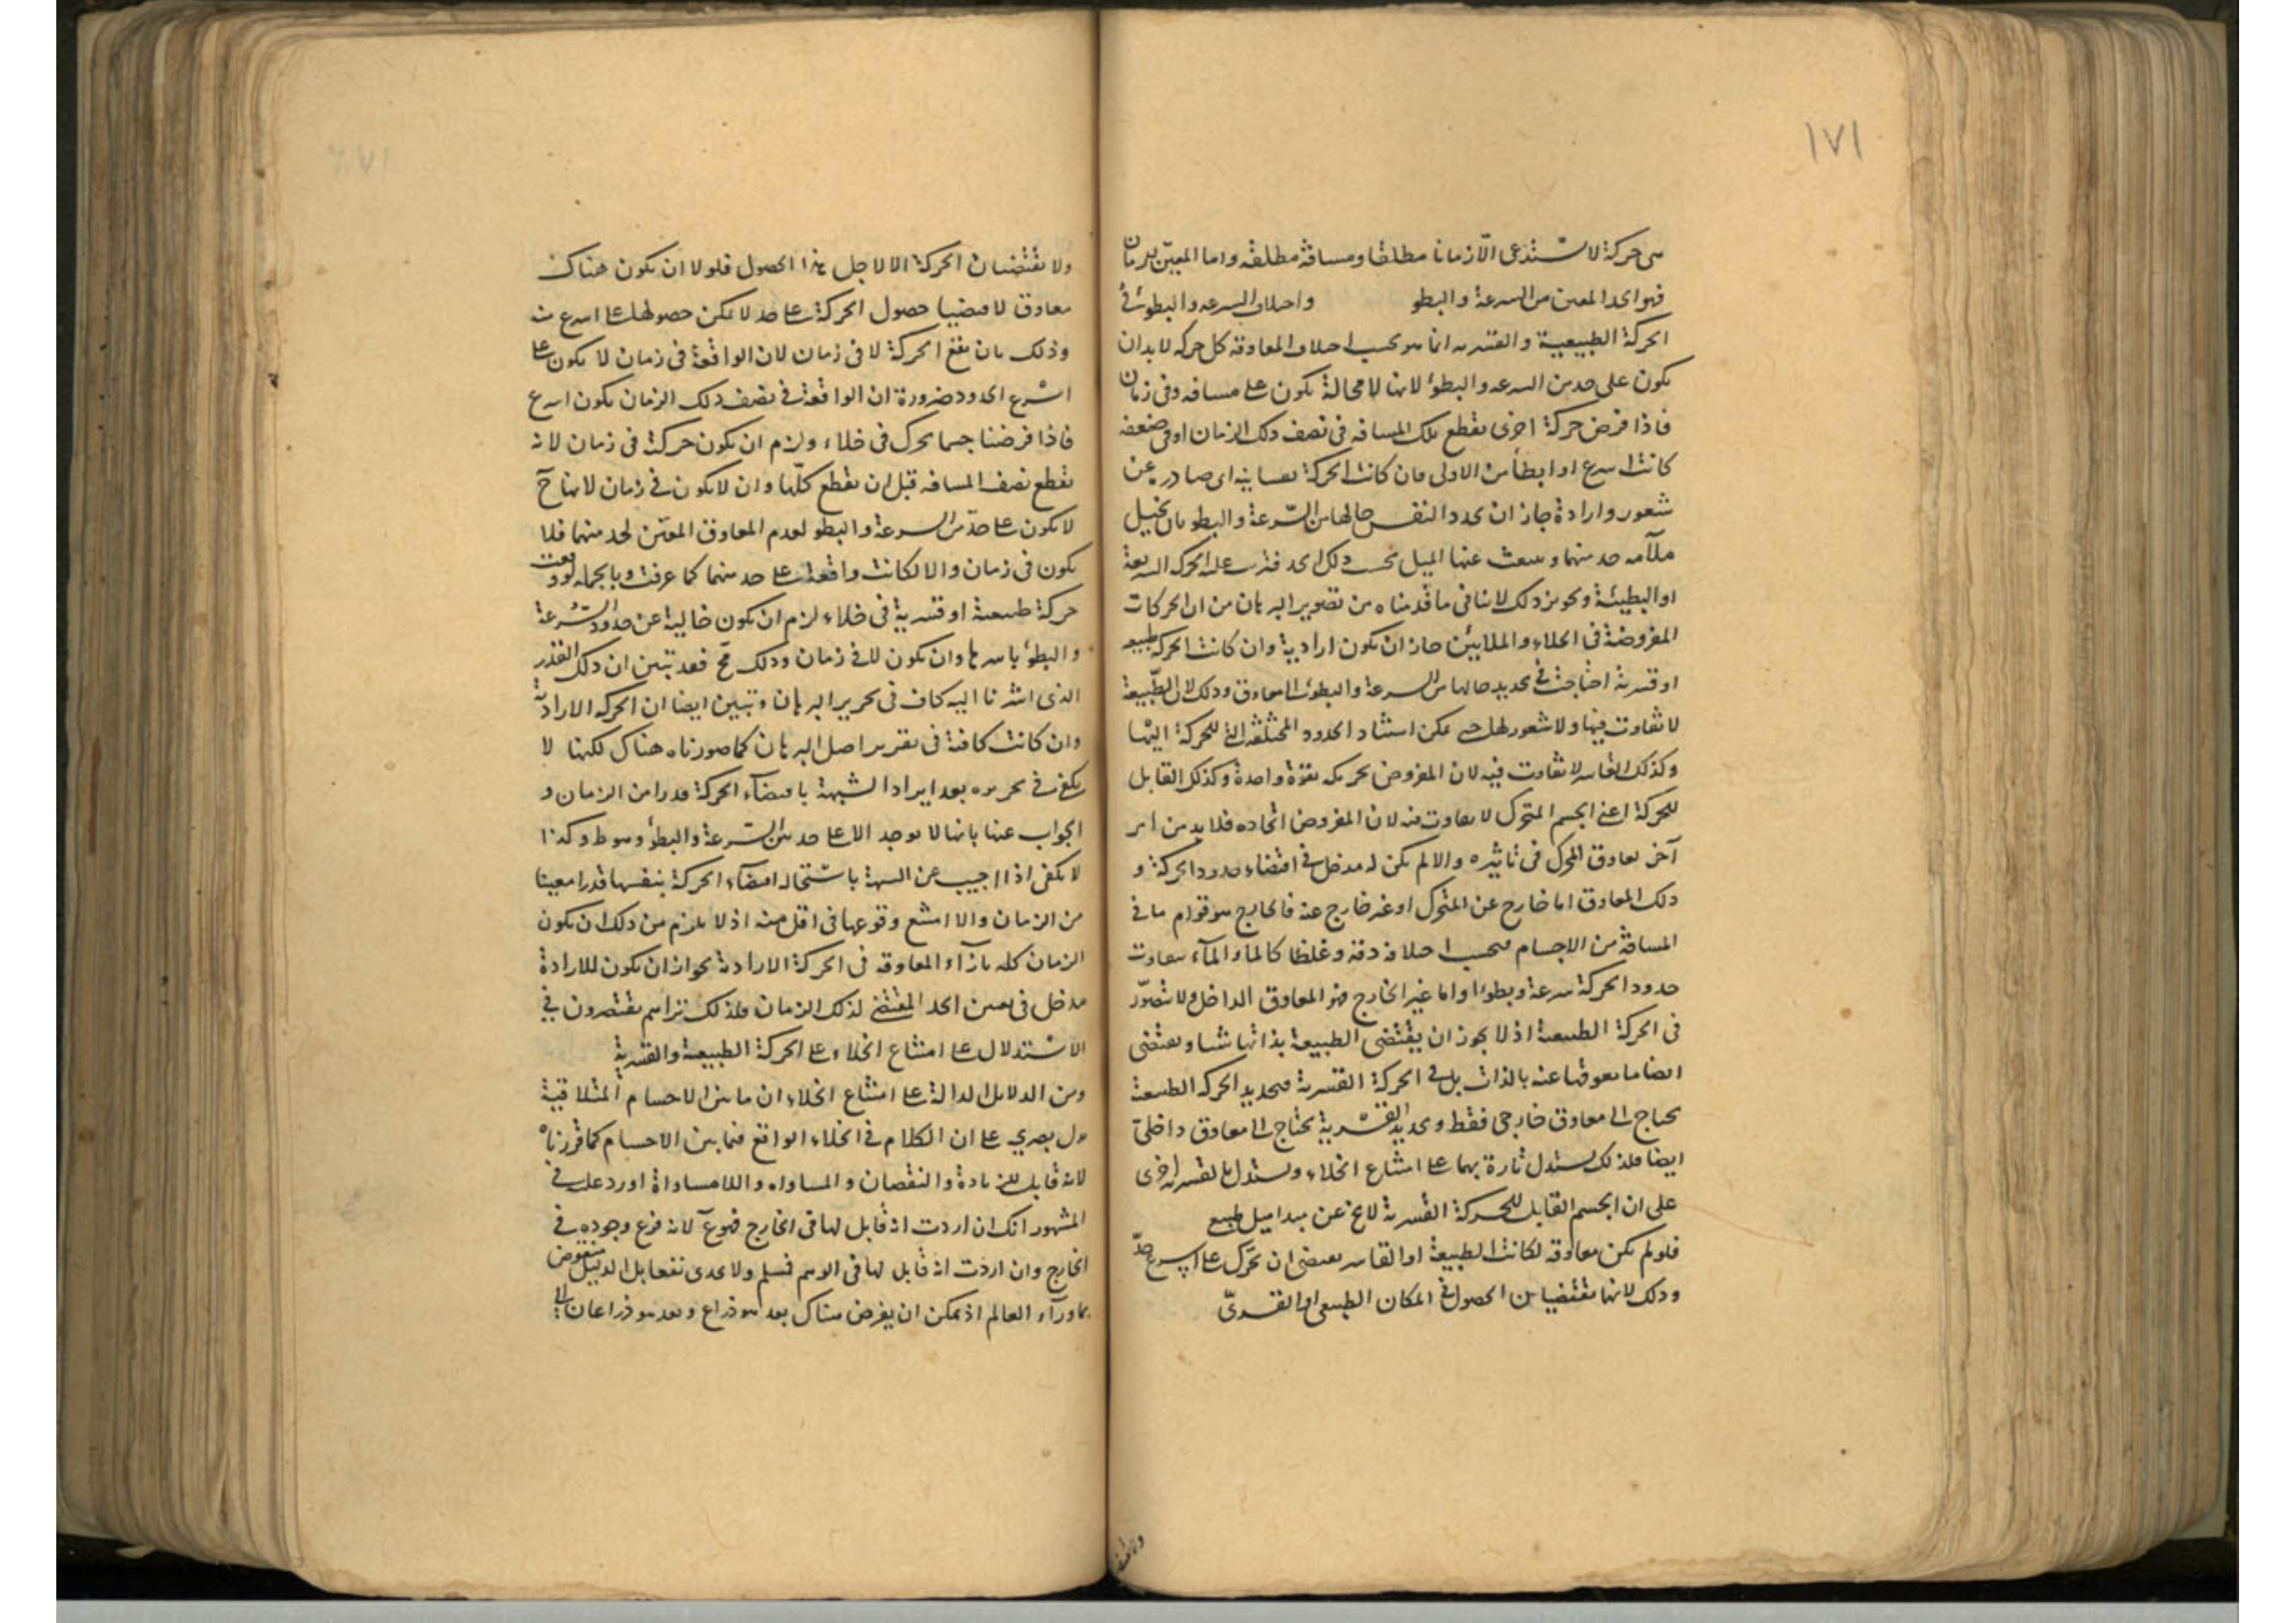 ١٧١
هى حركة لا تستدعى الا زمانا مطلقا ومسافة مطلقة واما المعين للزمان
فهو الحد المعين من السرعة والبطو واختلاف السرعه والبطوء فى
الحركة الطبيعية والقسريه انما هو بحسب اختلاف المعاوقه كل حركه لا بد ان
يكون على حد من السرعه والبطؤ لانها لا محالة يكون على مسافه وفى زمان
فاذا فرض حركة اخرى يقطع تلك المسافه فى نصف ذلك الزمان او فى ضعفه
كانت اسرع او ابطأ من الاولى فان كانت الحركة نفسانيه اى صادره عن
شعور وارادة جاز ان يحدد النفس حالها من السرعة والبطو بان تخيل
ملآمه حد منها وينبعث عنها الميل بحسب ذلك الحد فترتب عليه الحركه السريعة
او البطيئة وتجويز ذلك لا ينافى ما قدمناه من تصوير البرهان من ان الحركات
المفروضة فى الخلاء والملايين جاز ان يكون ارادية وان كانت الحركه طبيعيه
او قسرية احتاجت فى تحديد حالها من السرعة والبطوء الى معاوق وذلك لان الطبيعة
لا تفاوت فيها ولا شعور لها حتى يمكن استناد الحدود المختلفة التى للحركة اليها
وكذلك القاسر لا تفاوت فيه لان المفروض تحريكه بقوة واحدة وكذلك القابل
للحركة اعنى الجسم المتحرك لا تفاوت فيه لان المفروض اتحاده فلا بد من امر
آخر يعاوق المحرك فى تاثيره والا لم يكن له مدخل فى اقتضاء حدود الحركة و
ذلك المعاوق اما خارج عن المتحرك او غير خارج عنه فالخارج هو قوام ما فى
المسافة من الاجسام فبحسب اختلافه دقة وغلظا كالهواء والمآء يتفاوت
حدود الحركة سرعة وبطوءا واما غير الخارج فهو المعاوق الداخل ولا يتصور
فى الحركة الطبيعية اذ لا يجوز ان يقتضى الطبيعة بذاتها شيئا ويقتضى
ايضا ما يعوقها عنه بالذات بل فى الحركة القسرية فتحديد الحركه الطبيعية
يحتاج الى معاوق خارجى فقط وتحديد القسرية يحتاج الى معاوق داخلى
ايضا فلذلك يستدل تارة بهما على امتناع الخلاء ويستدل بالقسريه اخرى
على ان الجسم القابل للحركة القسرية لا يخ عن مبدا ميل طبيعى
فلو لم يكن معاوقه لكانت الطبيعة او القاسر يقتضى ان تحرك على اسرع حد
وذلك لانهما يقتضيان الحصول فى المكان الطبيعى او القسرى
ولا يقتضيان
ولا يقتضيان الحركة الا لاجل هذا الحصول فلولا ان يكون هناك
معاوق لاقتضيا حصول الحركة على حد لا يمكن حصولها على اسرع منه
وذلك بان يقع الحركة لا فى زمان لان الواقعة فى زمان لا يكون على
اسرع الحدود ضرورة ان الواقعة فى نصف ذلك الزمان يكون اسرع
فاذا فرضنا جسما يحرك فى خلاء ولزم ان يكون حركة فى زمان لانه
يقطع نصف المسافه قبل ان يقطع كلها وان لا يكون فى زمان لانها ح
لا يكون على حد من السرعة والبطو لعدم المعاوق المعين لحد منهما فلا
يكون فى زمان والا لكانت واقعة على حد منهما كما عرفت وبالجمله لو وقعت
حركة طبيعية او قسرية فى خلاء لزم ان يكون خالية عن حدود السرعة
والبطؤ باسرها وان يكون لا فى زمان وذلك مح فقد تبين ان ذلك القدر
الذى اشرنا اليه كاف فى تحرير البرهان وتبين ايضا ان الحركه الارادية
وان كانت كافية فى تقرير اصل البرهان كما صورناه هناك لكنها لا
يكفى فى تحريره بعد ايراد الشبهة باقتضاء الحركة قدرا من الزمان و
الجواب عنها بانها لا يوجد الا على حد من السرعة والبطؤ وسوط وكذا
لا يكفى اذا اجيب عن الشبهة باستحاله اقتضآء الحركة بنفسها قدرا معينا
من الزمان والا امتنع وقوعها فى اقل منه اذ لا يلزم من ذلك ان يكون
الزمان كله بازآء المعاوقه فى الحركة الارادية لجواز ان يكون للارادة
مدخل فى تعيين الحد المقتضى لذلك الزمان فلذلك تراهم يقتصرون فى
الاستدلال على امتناع الخلاء على الحركة الطبيعية والقسرية
ومن الدلايل الدالة على امتناع الخلاء ان ما بين الاجسام المتلاقية
على ان الكلام فى الخلاء الواقع فيما بين الاجسام كما قررناه
لانه قابل للزيادة والنقصان والمساواه واللامساواة اورد عليه فى
المشهور انك ان اردت انه قابل لها فى الخارج فهو ع لانه فرع وجوده فى
الخارج وان اردت انه قابل لها فى الوهم فسلم ولا يجدى نفعا بل الدليل منقوض
بماورآء العالم اذ يمكن ان يفرض هناك بعد هو ذراع وبعد هو ذراعان الى